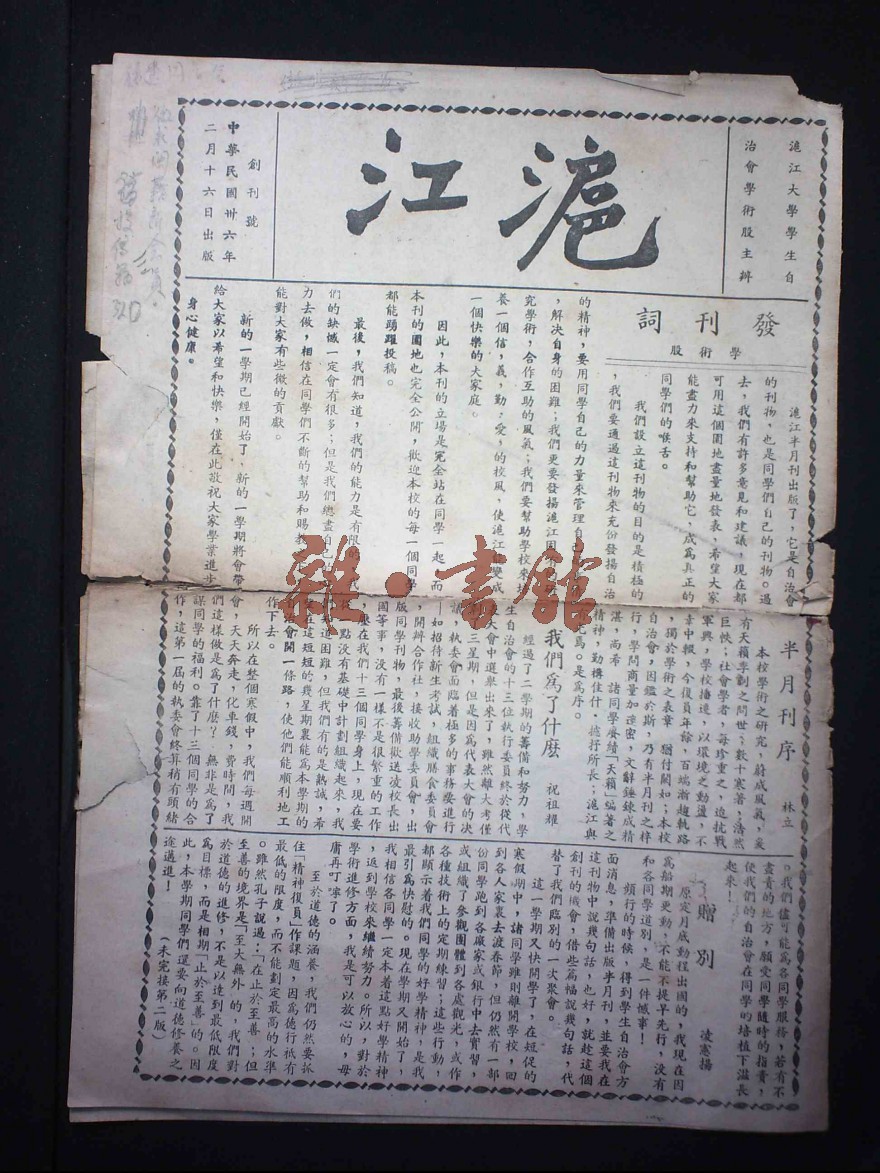 滬江大學學生自
治會學術股主辦
滬江
創刊號
中華民國卅六年
二月十六日出版
發刊詞
學術股
滬江半月刊出版了,它是自治會
的刊物,也是同學們自己的刊物。過
去,我們有許多意見和建議,現在都
可用這個園地盡量地發表,希望大家
能盡力來支持和幫助它,成爲真正的
同學們的喉舌。
我們設立這刊物的目的是積極的
,我們要通過這刊物來充份發揚自治
的精神,要用同學自己的力量來管理自
,解決自身的困難;我們更要發揚滬江固
究學術,合作互助的風氣;我們要幫助學校來
養一個信,義,勤,愛,的校風,使滬江能變成
一個快樂的大家庭。
因此,本刊的立場是完全站在同學一起,而
本刊的園地也完全公開,歡迎本校的每一個同學
都能踴躍投稿。
最後,我們知道,我們的能力是有限的,我
們的缺憾一定會有很多;但是我們總盡自己的
力去做,相信在同學們不斷的幫助和賜教
能對大家有些微的貢獻。
新的一學期已經開始了,新的一學期將會帶
給大家以希望和快樂,僅在此敬祝大家學業進步
身心健康。
半月刊序
林立
本校學術之研究,蔚成風氣,爰
有天籟季刊之問世;數十寒暑,浩然
巨帙;社會學者,每珍重之,迨抗戰
軍興,學校播遷,以環境之動盪,不
幸中輟,今復員年餘,百端漸趨軌路
,獨於學術之表章,猶付闕如;本校
自治會,因鑑於斯,乃有半月刊之梓
行,學問商量加邃密,文辭錘鍊成精
湛,尚希 諸同學賡續「天籟」編著之
精神,勤搆佳什,攄抒所長;滬江與
焉。是爲序。
我們爲了什麽
祝祖耀
經過了二學期的籌備和努力,學
生自治會的十三位執行委員終於從代
大會中選舉出來了,雖然離大考僅
三星期,但是因爲代表大會的決
議,執委會面臨着極多的事務要進行
—如招待新生考試,組織膳食委員會
,開辦合作社,接收助學委員會,出
版同學刊物,最後籌備歡送凌校長出
國等事,沒有一樣不是很繁重的工作
,壓在我們十三個同學身上,現在要
從一點沒有基礎中計劃組織起來,我
知道困難,但我們有的是熱誠,希
望在這短短的幾星期裏能爲本學期的
自治會開一條路,使他們能順利地工
作下去。
所以在整個寒假中,我們每週開
會,天天奔走,化車錢,費時間,我
們這樣做是爲了什麽? 無非是爲了
謀同學的福利。靠了十三個同學的合
作,這第一屆的執委會終算稍有頭緒
。我們儘可能爲各同學服務,若有不
盡責的地方,願受同學隨時的指責,
使我們的自治會在同學的培植下滋長
起來!
贈別
凌憲揚
原定月底動程出國的,我現在因
爲船期更動,不能不提早先行,沒有
和各同學道別,是一件憾事!
頻行的時候,得到學生自治會方
面消息,準備出版半月刊,並要我在
這刊物中說幾句話,也好,就趁這個
創刊的機會,借些篇幅說幾句話,代
替了我們臨別的一次聚會。
這一學期又快開學了,在短促的
寒假期中,諸同學雖則離開學校,回
到各人家裏去渡春節,但仍然有一部
份同學跑到各廠家或銀行中去實習,
或組織了參觀團體到各處觀光,或作
各種技術上的定期練習;這些行動,
都顯示着我們同學的好學精神,是我
最引爲快慰的。現在學期又開始了,
我相信各同學一定本着這點好學精神
,返到學校來繼續努力。所以,對於
學術進修方面,我是可以放心的,毋
庸再叮嚀了。
至於道德的涵養,我們仍然要抓
住「精神復員」作課題,因爲德行祗有
最低的限度,而不能劃定最高的水準
。雖然孔子說過:「在止於至善」;但
至善的境界是「至大無外」的,我們對
於道德的進修,不是以達到最低限度
爲目標,而是相期「止於至善」的。因
此,本學期同學們還要向道德修養之
途邁進!
(未完接第二版)
雜·書館